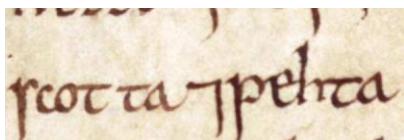 scotta ⁊ pehta